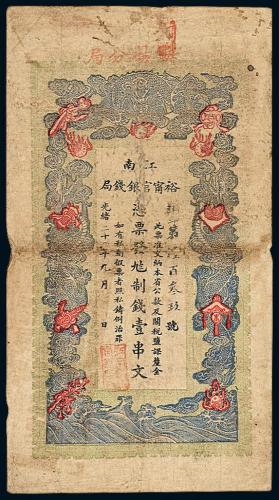 局分
江南
裕甯官銀錢局
號
此票准完納本省公款及關稅鹽課釐金
憑票發足制錢壹串文
如有私刻假票者照私鑄例治罪
光緒二十 年九月 日